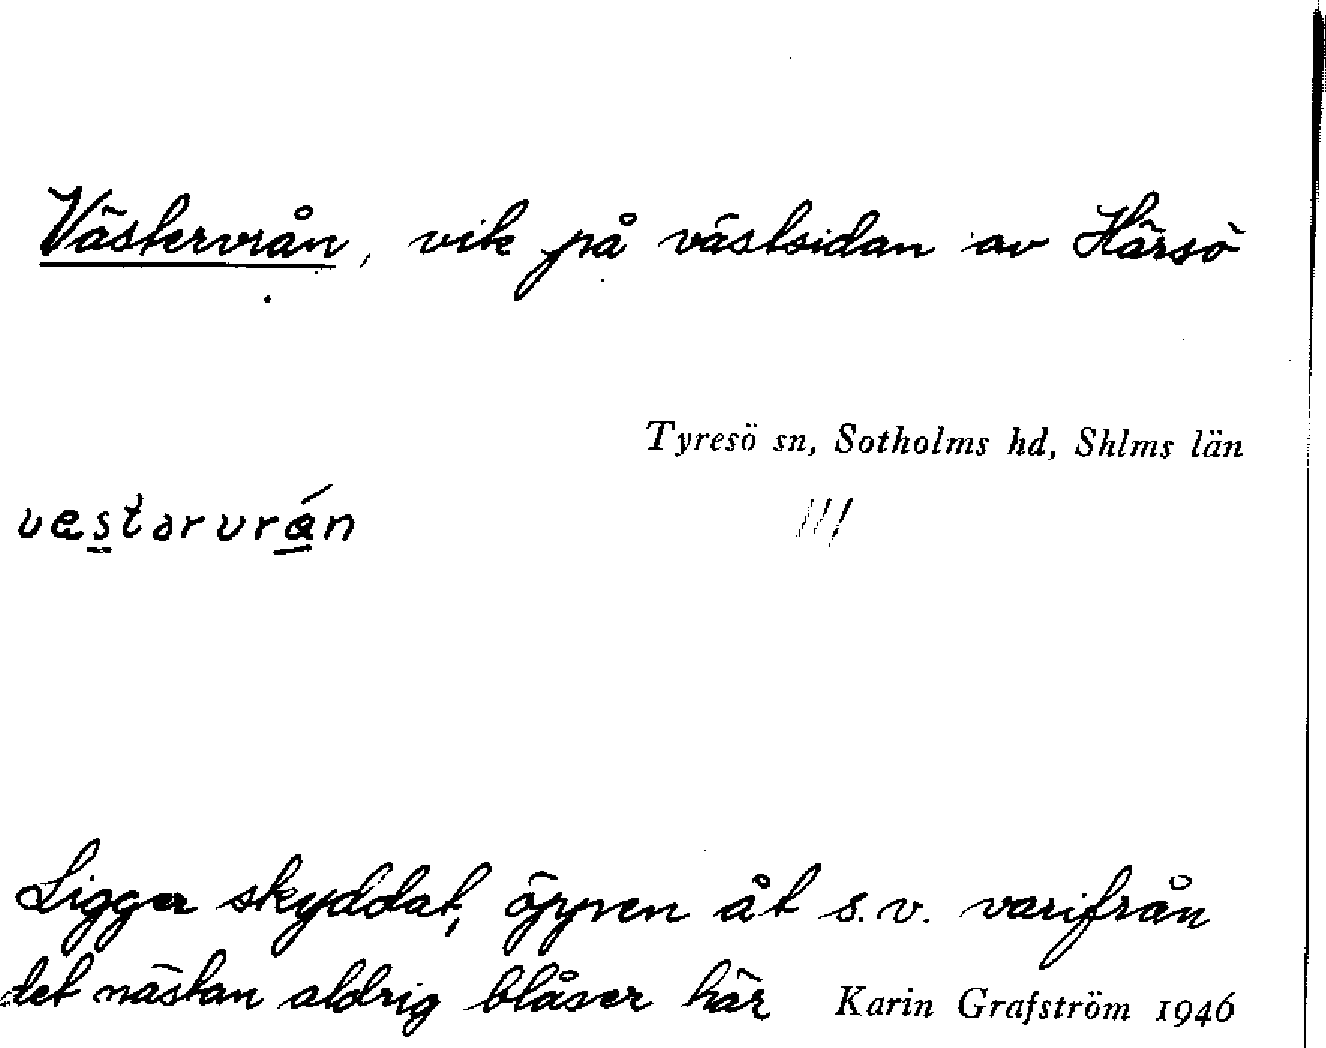 Västervrån, vik på västsidan av Härsö
Tyresö sn, Sotholms hd, Shlms län
vestərvrán
Ligger skyddat, öppen åt s.v. varifrån
det nästan aldrig blåser här
Karin Grafström 1946